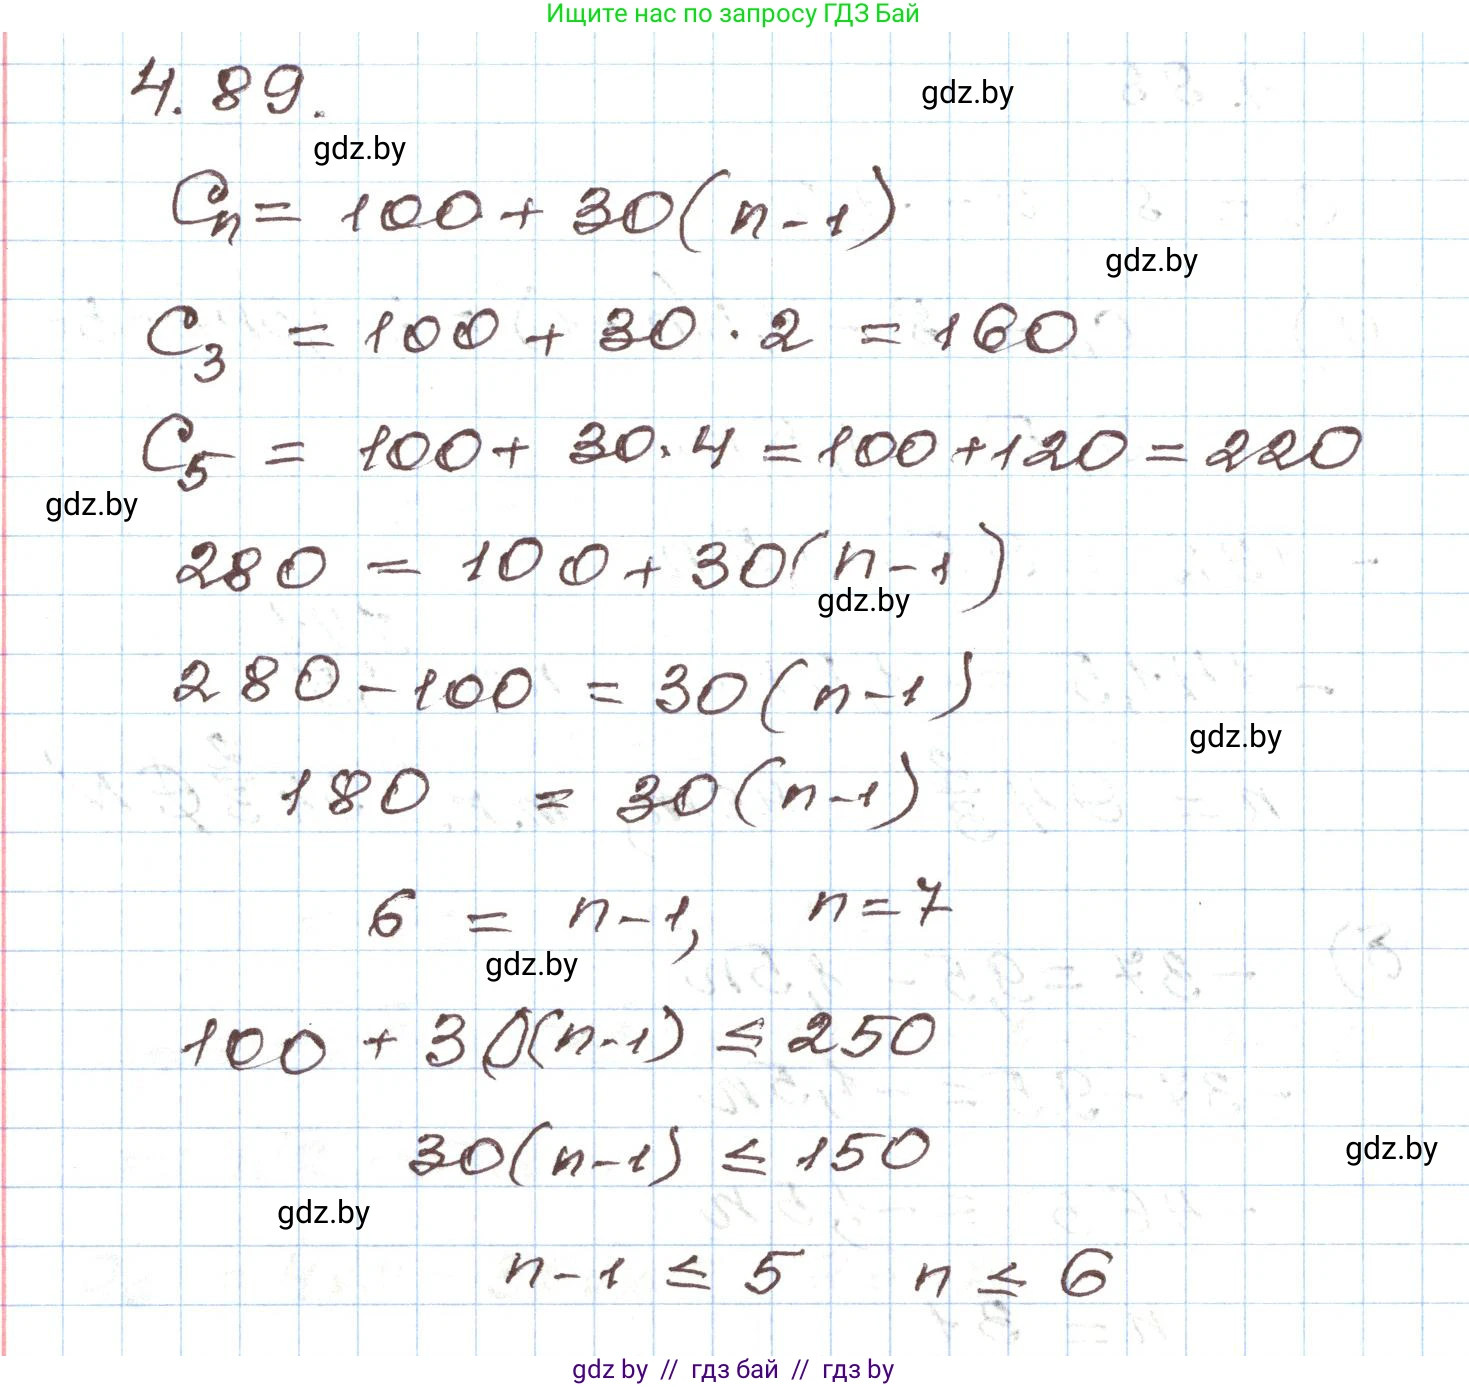 Ищите нас по запросу ГДЗ Бай
4.89.
gdz.by
gdz.by
Cn = 100 + 30(n-1)
gdz.by
C3 = 100 + 30 · 2 = 160
C5 = 100 + 30 · 4 = 100 + 120 = 220
gdz.by
280 = 100 + 30(n-1)
gdz.by
280 - 100 = 30(n-1)
gdz.by
180 = 30(n-1)
6 = n-1, n=7
gdz.by
100 + 30(n-1) ≤ 250
30(n-1) ≤ 150
gdz.by
gdz.by
n-1 ≤ 5 n ≤ 6
gdz by // гдз бай // гдз by